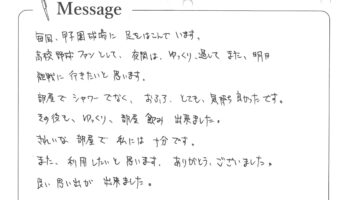 Message
毎回、甲子園球場に 足をはこんで います。
高校野球ファンとして、夜間は、ゆっくり、過して また、明日
観戦に 行きたいと 思います。
部屋で シャワーでなく、おふろ、とても、気持ち良かったです。
その後も、ゆっくり、部屋飲み 出来ました。
きれいな 部屋で 私には 十分です。
また、利用したいと 思います。ありがとう、ございました。
良い 思い出が 出来ました。